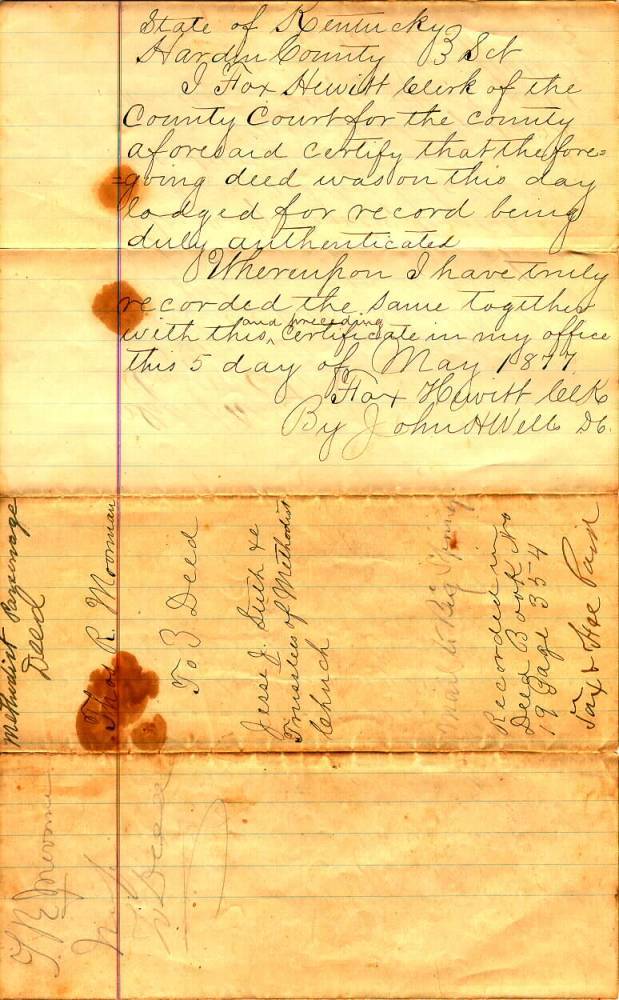 State of Kentucky
Hardin County } Sct
I Fox Hewitt Clerk of the
County Court for the county
aforesaid certify that the fore=
=going deed was on this day
lodged for record being
duly authenticated
Whereupon I have truly
recorded the same together
with this and preceding certificate in my office
this 5 day of May 1877
Fox Hewitt Clk
By John H Wells DC.
Methodist
Deed
Thos R. Moorman
To } Deed
Jesse J. &c
Trustees of Methodist
Church
Mail to Big Spring
Recorded in
Deed Book No
19 Page 354
Tax & Fee Paid
T. R.
Deed